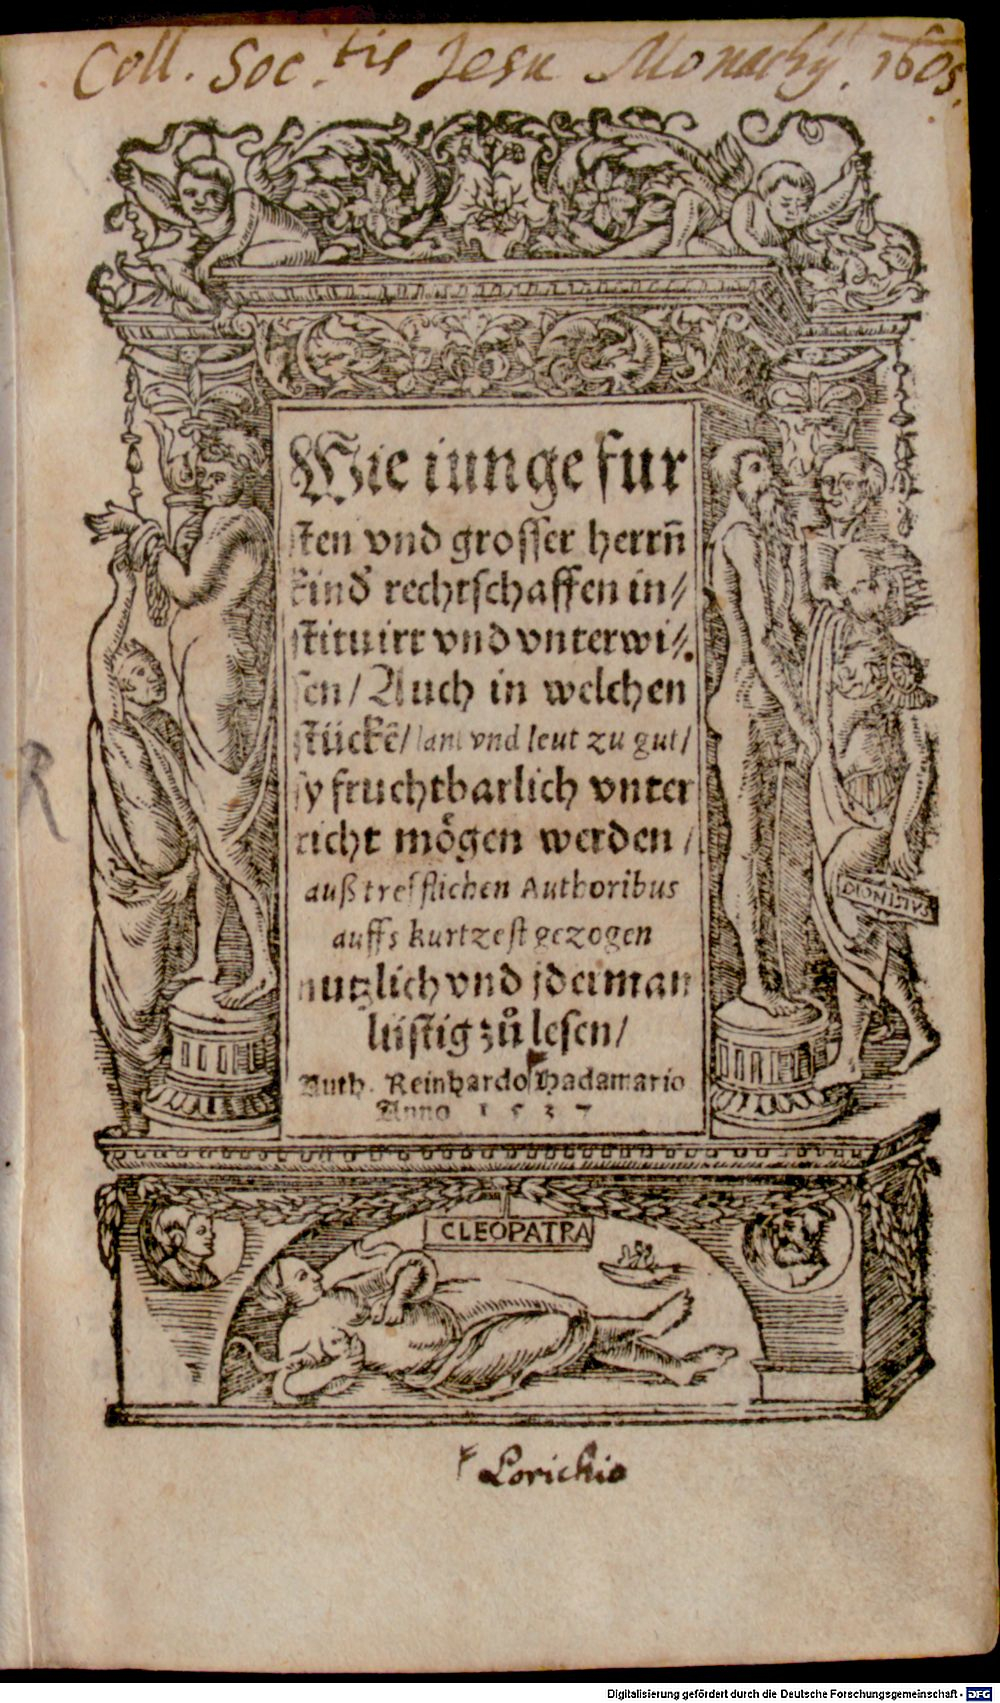 Coll. Soc.tis Jesu Monachij. 1605.
Wie iunge fur
sten vnd grosser herrn̄
kind rechtschaffen in⸗
stituirt vnd vnterwi⸗
sen/ Auch in welchen
stückē/ lant vnd leut zu gut/
sy fruchtbarlich vnter
richt mögen werden/
auß trefflichen Authoribus
auffs kurtzest gezogen
nutzlich vnd iderman
lüstig zuͦ lesen/
Auth. Reinhardo Hadamario
Anno 1537
DIONISIVS
CLEOPATRA
Lorichio
R
Digitalisierung gefördert durch die Deutsche Forschungsgemeinschaft - DFG